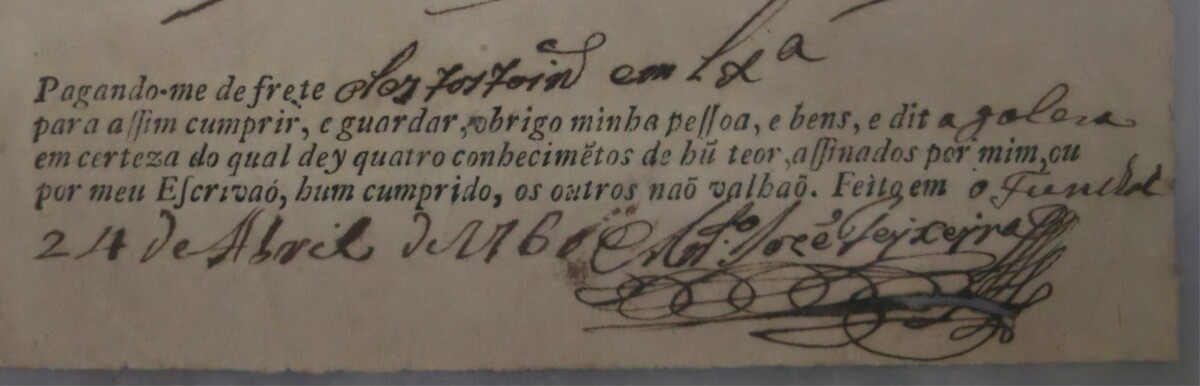 Pagando-me de frete des tostoins em Lxª
para aſſim cumprir, e guardar, obrigo minha peſſoa, e bens, e dita galera
em certeza do qual dey quatro conhecimẽtos de hũ teor, aſſinados por mim, ou
por meu Eſcrivaõ, hum cumprido, os outros naõ valhaõ. Feito em o Funchal
24 de Abril de 176 Antº Jozé Teixeyra